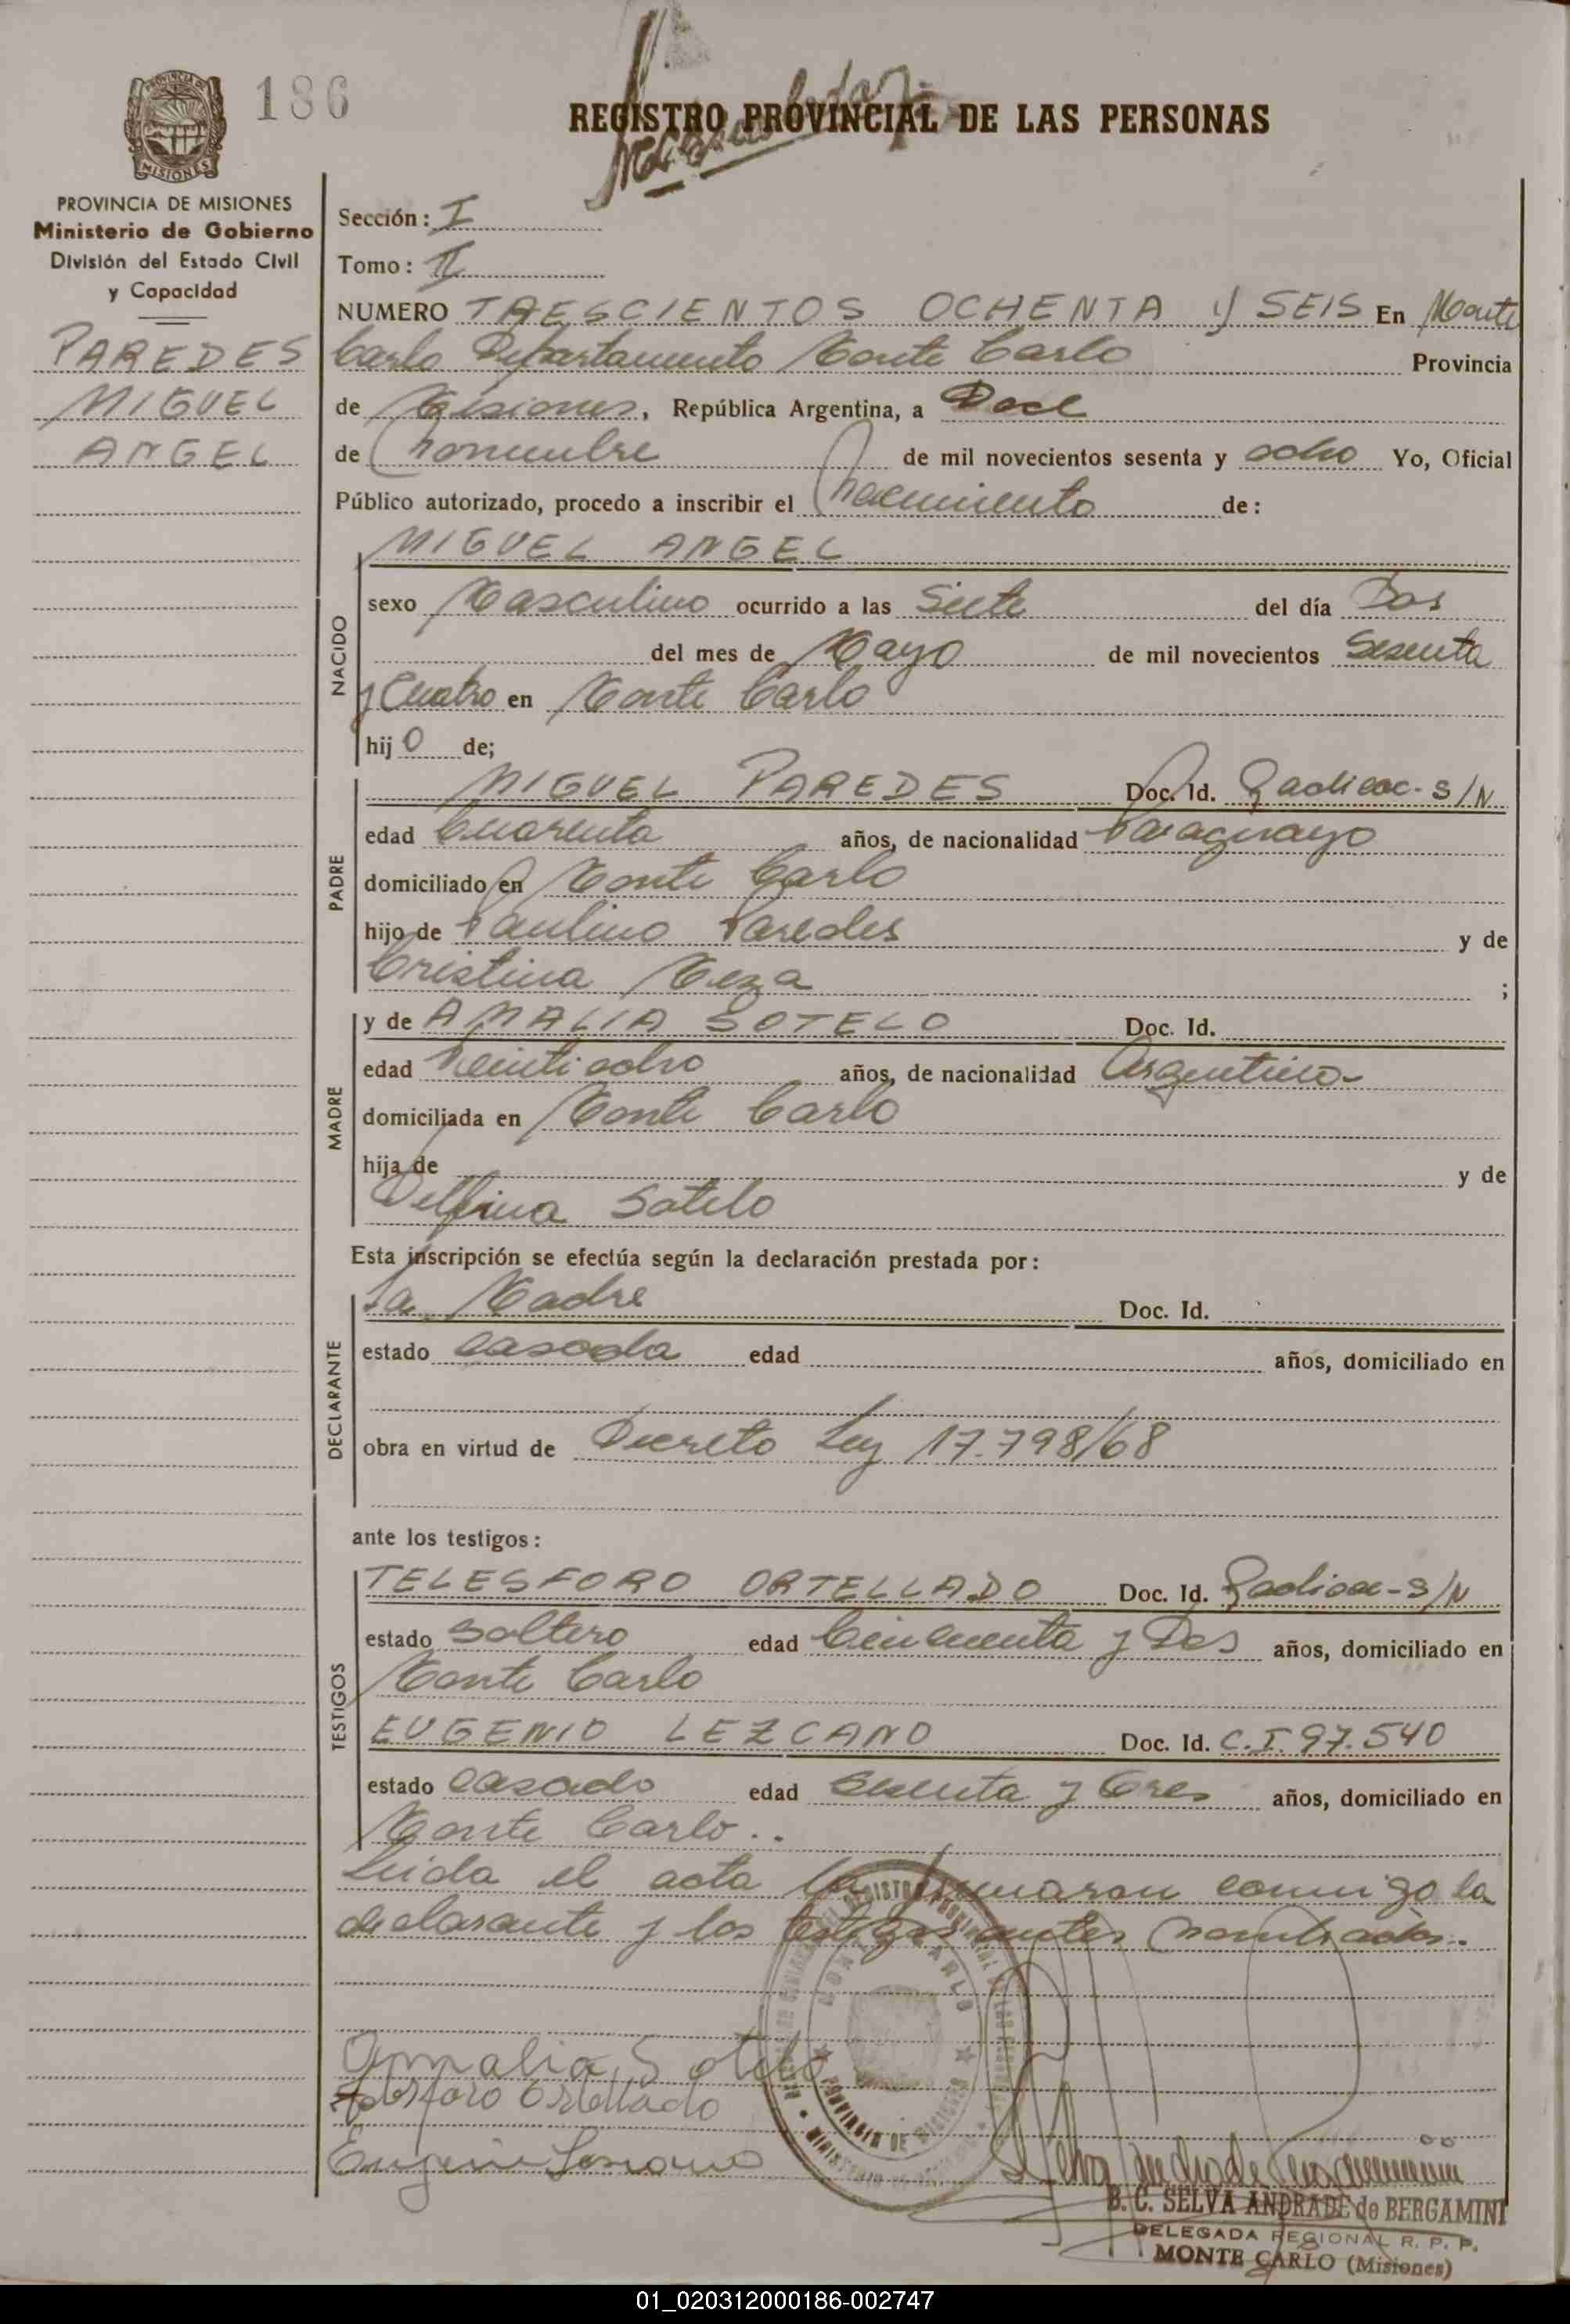 186
REGISTRO PROVINCIAL DE LAS PERSONAS
MISIONES
PROVINCIA DE MISIONES
Ministerio de Gobierno
División del Estado Civil
y Capacidad
PAREDES
MIGUEL
ANGEL
Sección: I
Tomo: II
NUMERO TRESCIENTOS OCHENTA y SEIS En Monte
Carlo Departamento Monte Carlo Provincia
de Misiones, República Argentina, a Doce
de noviembre de mil novecientos sesenta y ocho Yo, Oficial
Público autorizado, procedo a inscribir el nacimiento de:
NACIDO
MIGUEL ANGEL
sexo Masculino ocurrido a las Siete del día Dos
del mes de Mayo de mil novecientos Sesenta
y Cuatro en Monte Carlo
hijo de;
PADRE
MIGUEL PAREDES Doc. Id. Radicac- S/N
edad Cuarenta años, de nacionalidad Paraguayo
domiciliado en Monte Carlo
hijo de Paulino Paredes y de
Cristina Meza ;
MADRE
y de AMALIA SOTELO Doc. Id.
edad Veintiocho años, de nacionalidad Argentina-
domiciliada en Monte Carlo
hija de y de
Delfina Sotelo
Esta inscripción se efectúa según la declaración prestada por:
DECLARANTE
La Madre Doc. Id.
estado casada edad años, domiciliado en
obra en virtud de Decreto Ley 17.798/68
ante los testigos:
TESTIGOS
TELESFORO ORTELLADO Doc. Id. Radicac- S/N
estado Soltero edad Cincuenta y Dos años, domiciliado en
Monte Carlo
EUGENIO LEZCANO Doc. Id. C.I. 97.540
estado casado edad Sesenta y Tres años, domiciliado en
Monte Carlo..
Leida el acta la firmaron conmigo la
declarante y los testigos antes nombrados.
Amalia Sotelo
Telesforo Ortellado
Eugenio Lescano
PROVINCIA DE MISIONES
B. C. SELVA ANDRADE de BERGAMINI
DELEGADA REGIONAL R. P. P.
MONTE CARLO (Misiones)
01_020312000186-002747